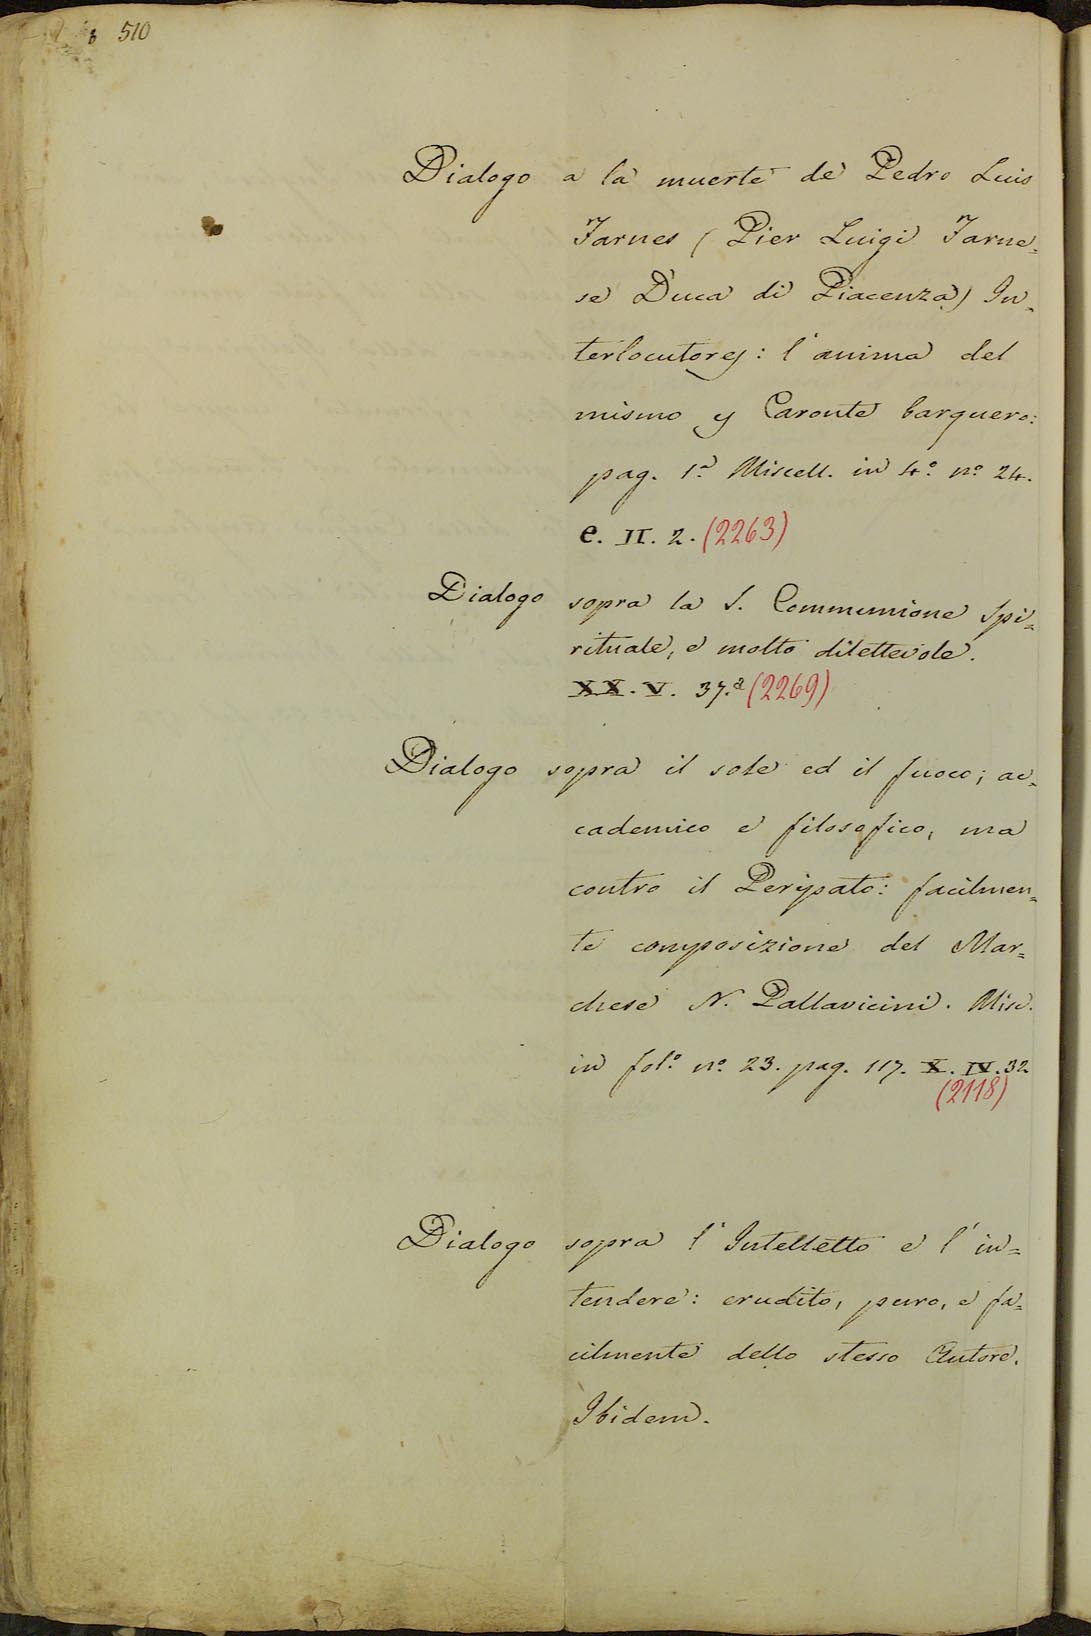 510
Dialogo a la muerte de Pedro Luis
Farnes (Pier Luigi Farne=
se Duca di Piacenza) In=
terlocutores: l'anima del
mismo y Caronte barquero:
pag. 1ª Miscell. in 4º nº 24.
e. II. 2. (2263)
Dialogo sopra la S. Communione Spi=
rituale, e molto dilettevole.
XX. V. 37.ª (2269)
Dialogo sopra il sole ed il fuoco; ac=
cademico e filosofico, ma
contro il Peripato: facilmen=
te composizione del Mar=
chese N. Pallavicini. Misc.
in fol.º nº 23. pag. 117. X. IV. 32
(2118)
Dialogo sopra l'Intelletto e l'in=
tendere: erudito, puro, e fa=
cilmente dello stesso Autore.
Ibidem.